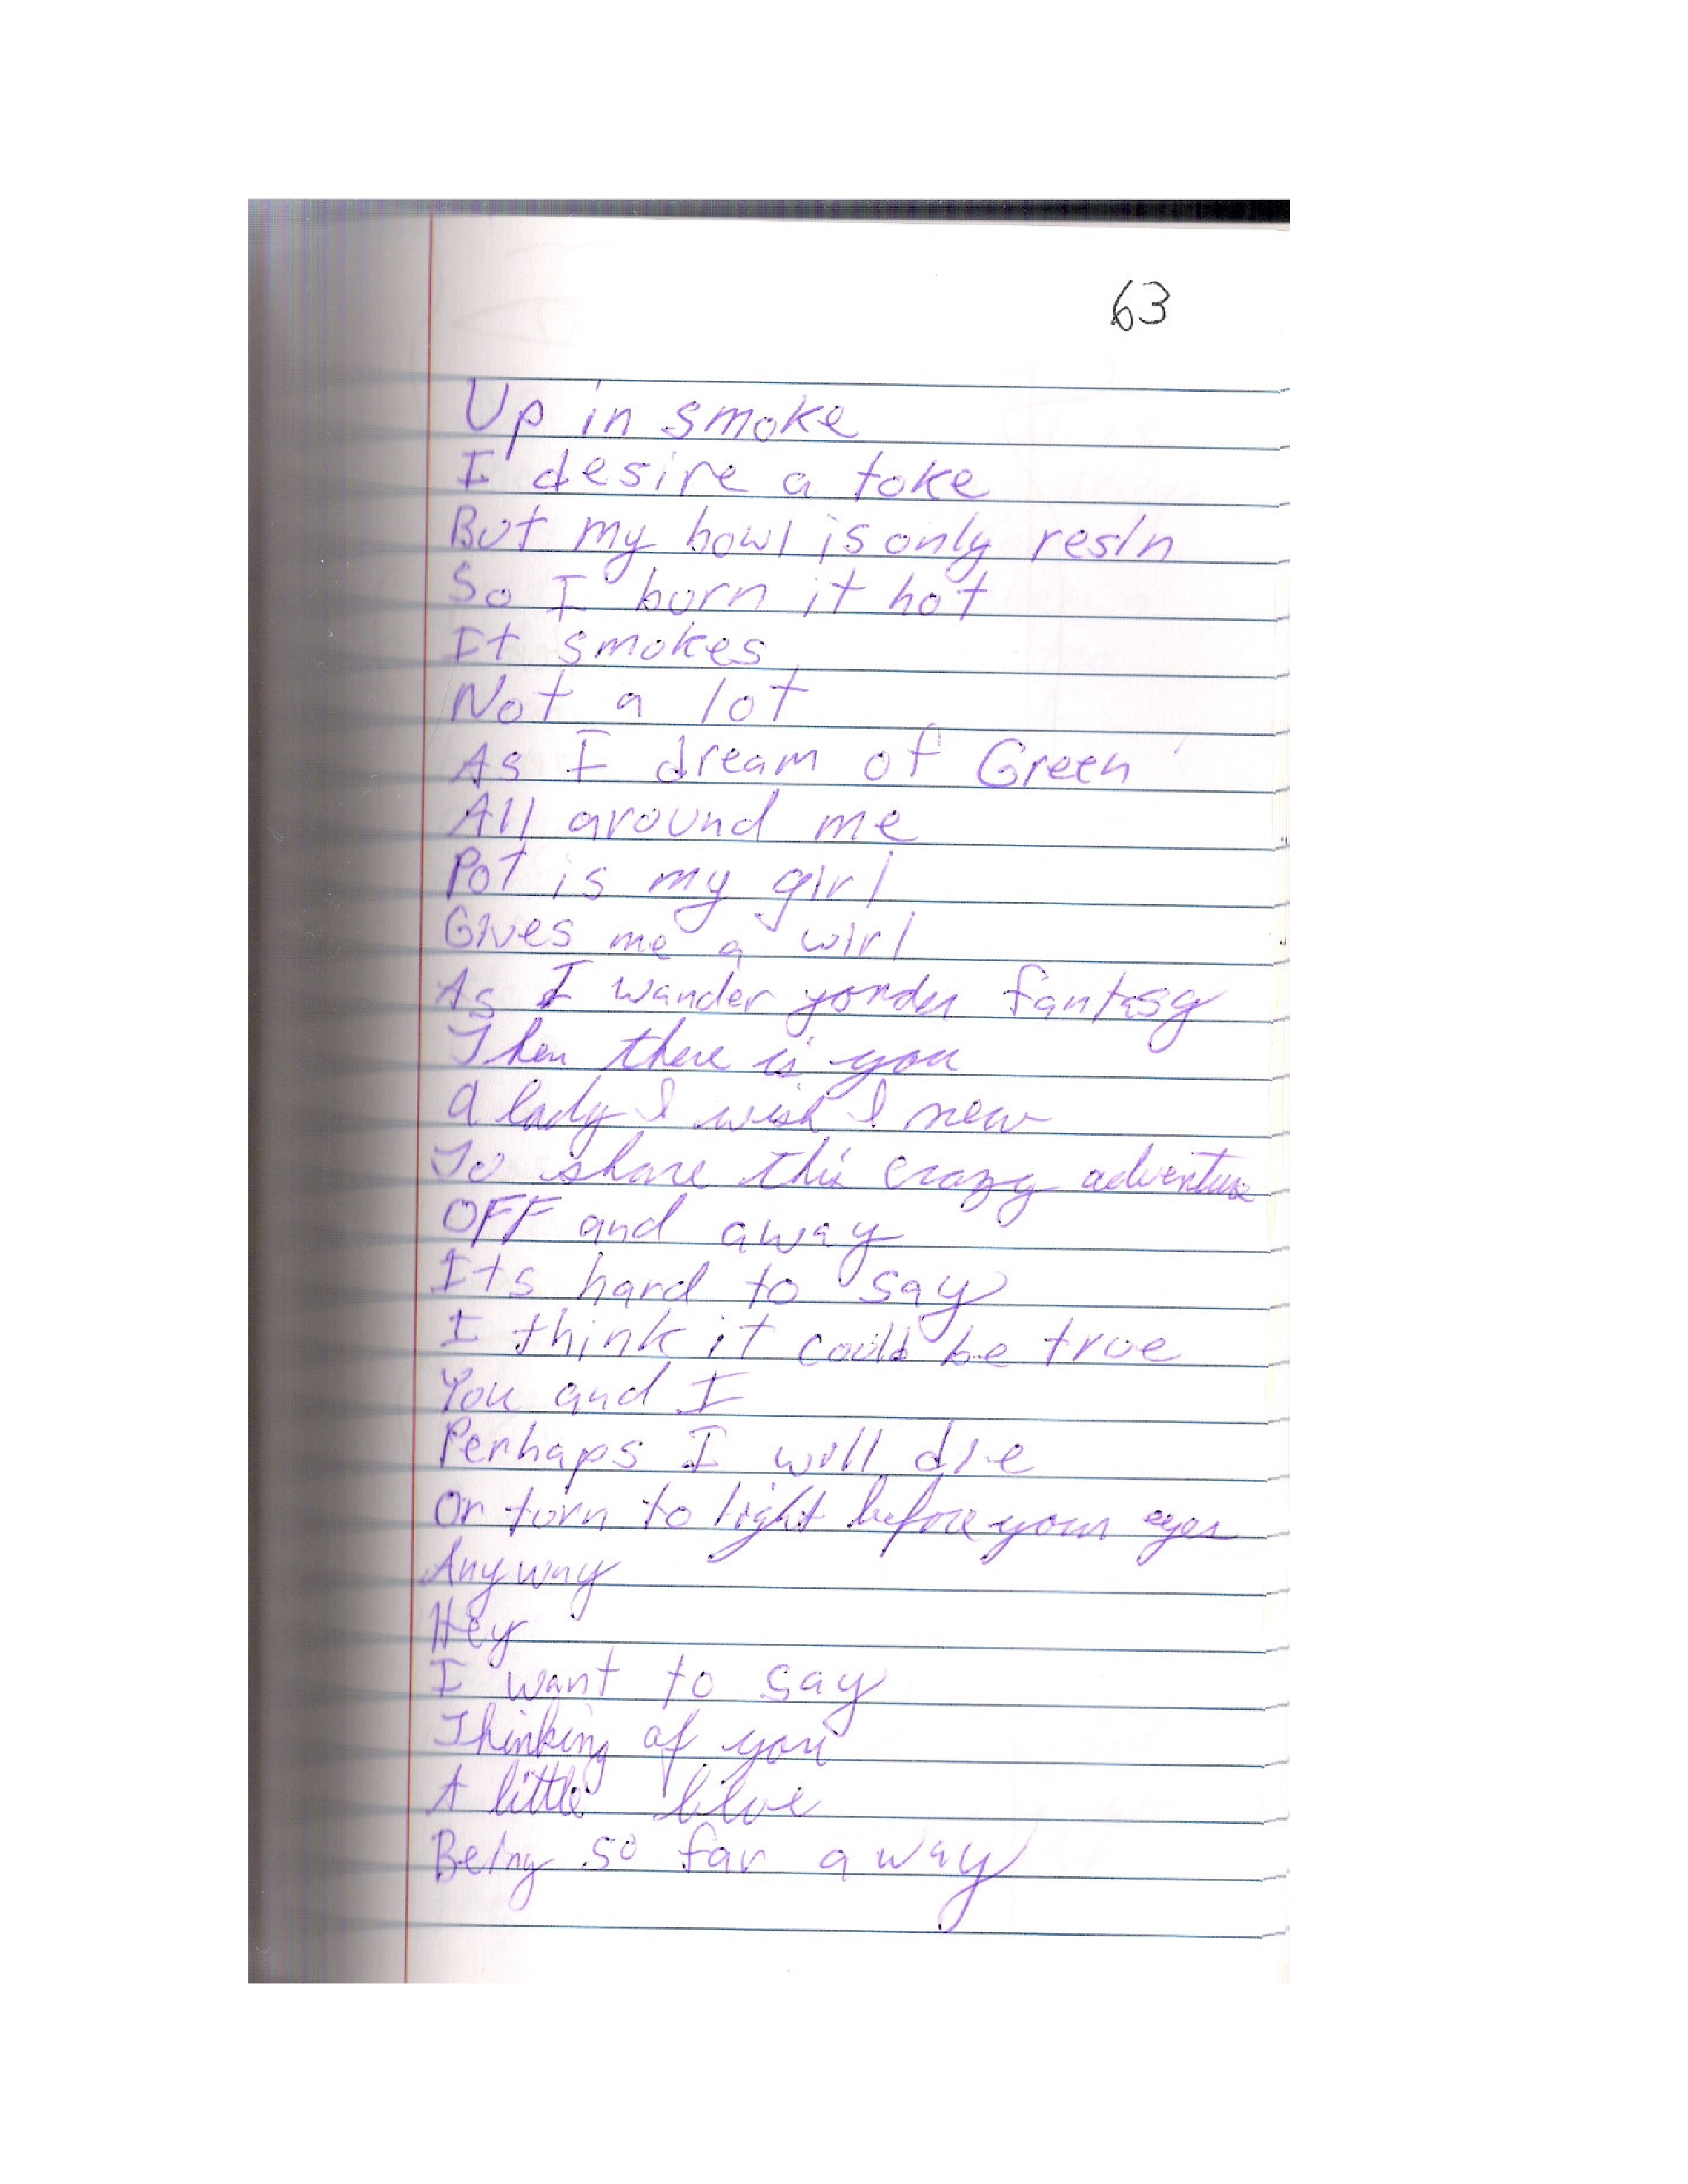 63
Up in smoke
I desire a toke
But my bowl is only resin
So I burn it hot
It smokes
Not a lot
As I dream of Green
All around me
Pot is my girl
Gives me a wirl
As I wander yonder fantasy
Then there is you
A lady I wish I new
To share this crazy adventure
OFF and away
Its hard to say
I think it could be true
You and I
Perhaps I will die
Or turn to light before your eyes
Anyway
Hey
I want to say
Thinking of you
A little blue
Being so far away